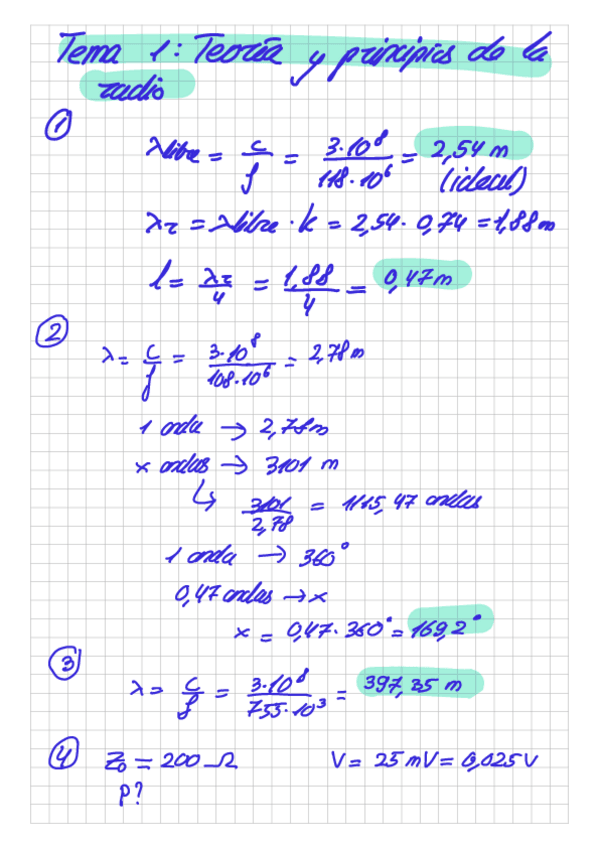 Tema 1: Teoría y principios de la
radio
① λlibre = c/f = 3·10⁸/118·10⁶ = 2,54 m
(ideal)
λr = λlibre · k = 2,54 · 0,74 = 1,88m
l = λr/4 = 1,88/4 = 0,47m
② λ = c/f = 3·10⁸/108·10⁶ = 2,78 m
1 onda → 2,78m
x ondas → 3101 m
↳ 3101/2,78 = 1115,47 ondas
1 onda → 360°
0,47 ondas → x
x = 0,47 · 360° = 169,2°
③ λ = c/f = 3·10⁸/755·10³ = 397,35 m
④ Z₀ = 200 Ω V = 25 mV = 0,025 V
P?